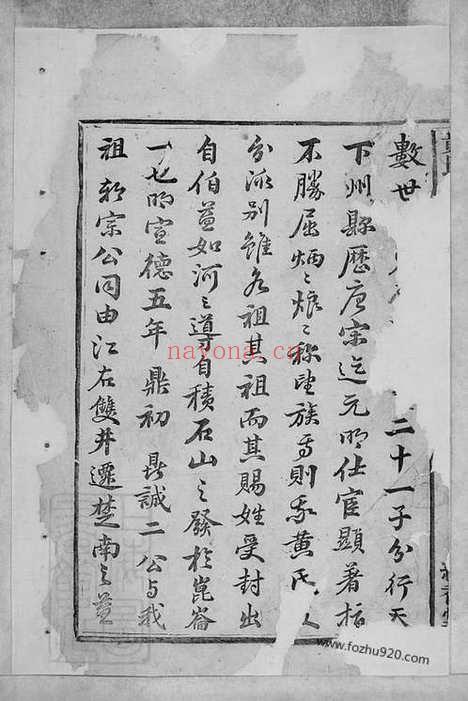 數世
二十一子分行天
下州縣歷唐宋迄元明仕宦顯著指
不勝屈炳〻烺〻称望族焉則我黄氏
分派别雖各祖其祖而其賜姓受封出
自伯益如河之導自積石山之發於崑崙
一也明宣德五年 鼎初 鼎誠二公与我
祖 朝宗公同由江右雙井遷楚南之益
nayona.cn
www.fozhu920.com